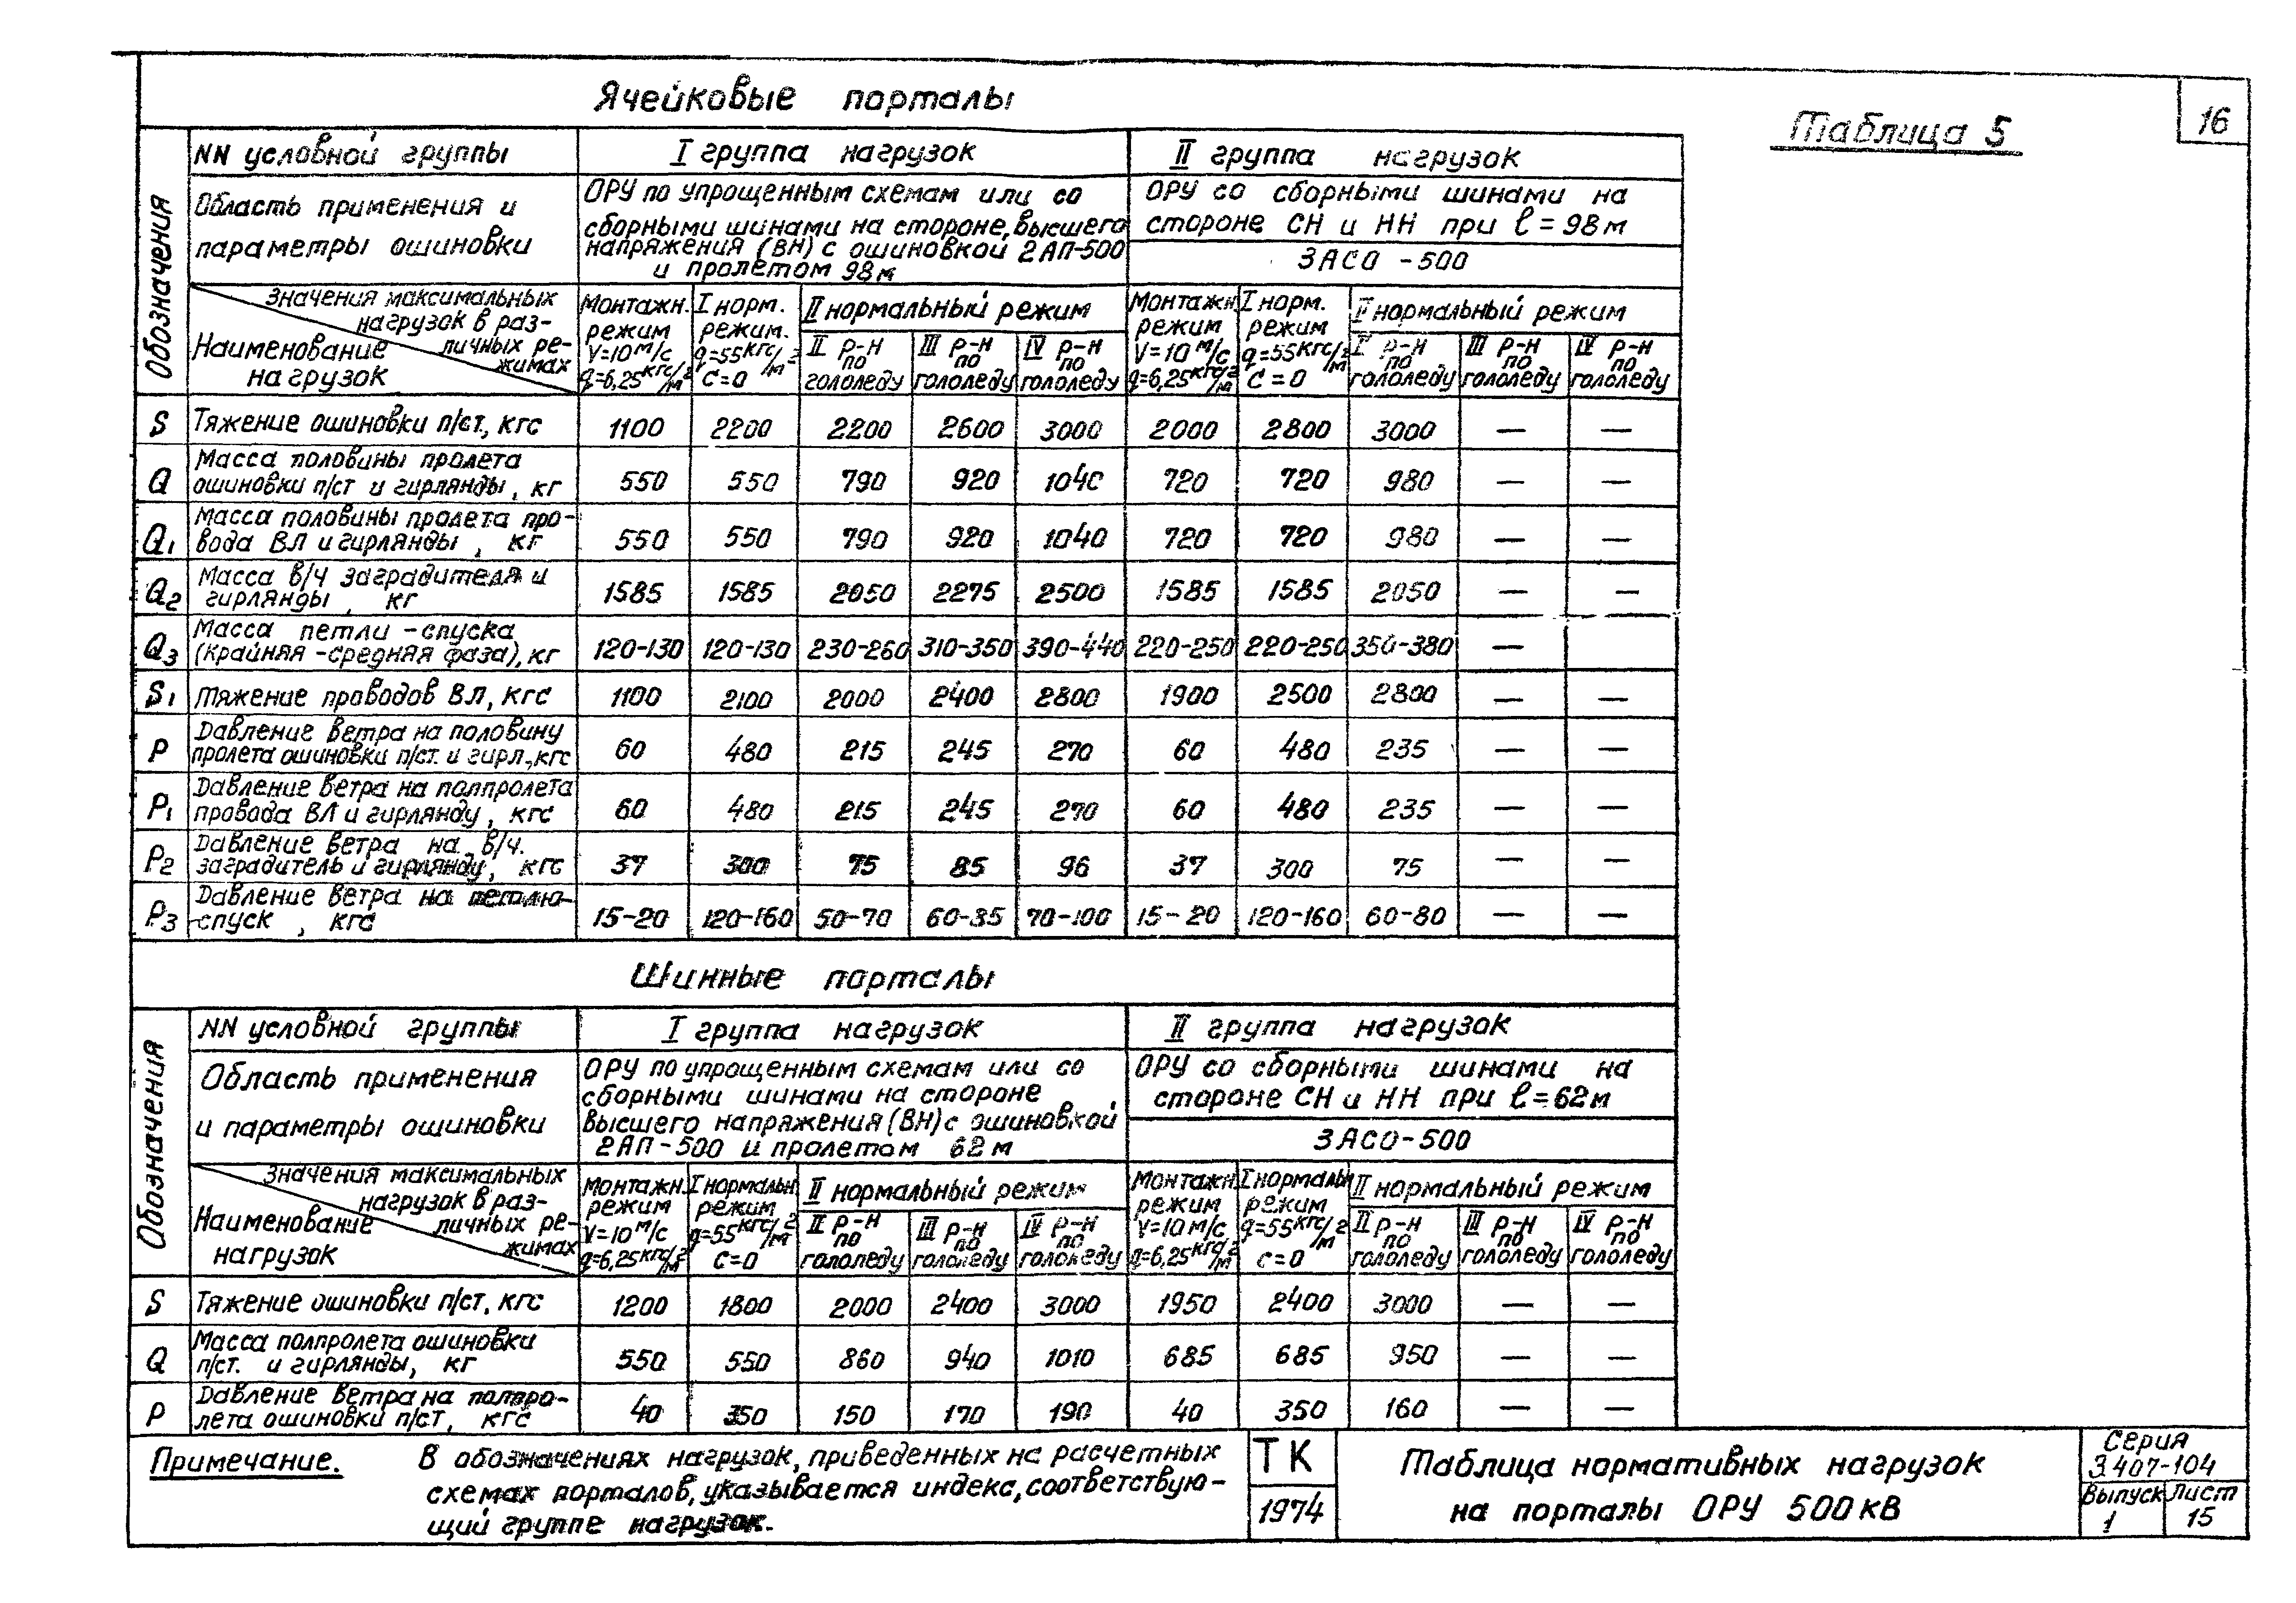 16
Таблица 5
Ячейковые порталы
Обозначения
NN условной группы
I группа нагрузок
II группа нагрузок
Область применения и
параметры ошиновки
ОРУ по упрощенным схемам или со
сборными шинами на стороне, высшего
напряжения (ВН) с ошиновкой 2АП-500
и пролетом 98м
ОРУ со сборными шинами на
стороне СН и НН при ℓ = 98м
3АСО-500
Значения максимальных
нагрузок в раз-
личных ре-
жимах
Наименование
нагрузок
Монтажн.
режим
V=10 м/с
q=6,25 кгс/м²
I норм.
режим.
q=55 кгс/м²
C=0
II нормальный режим
II р-н
по
гололеду
III р-н
по
гололеду
IV р-н
по
гололеду
Монтажн.
режим
V=10 м/с
q=6,25 кгс/м²
I норм.
режим
q=55 кгс/м²
C=0
нормальный режим
р-н
по
гололеду
III р-н
по
гололеду
IV р-н
по
гололеду
S Тяжение ошиновки п/ст, кгс 1100 2200 2200 2600 3000 2000 2800 3000 — —
Q Масса половины пролета
ошиновки п/ст и гирлянды, кг 550 550 790 920 1040 720 720 980 — —
Q1 Масса половины пролета про-
вода ВЛ и гирлянды, кг 550 550 790 920 1040 720 720 980 — —
Q2 Масса в/ч заградителя и
гирлянды, кг 1585 1585 2050 2275 2500 1585 1585 2050 — —
Q3 Масса петли-спуска
(крайняя-средняя фаза), кг 120-130 120-130 230-260 310-350 390-440 220-250 220-250 350-380 —
S1 Тяжение проводов ВЛ, кгс 1100 2100 2000 2400 2800 1900 2500 2800 — —
P Давление ветра на половину
пролета ошиновки п/ст. и гирл., кгс 60 480 215 245 270 60 480 235 — —
P1 Давление ветра на полпролета
провода ВЛ и гирлянду, кгс 60 480 215 245 270 60 480 235 — —
P2 Давление ветра на в/ч.
заградитель и гирлянду, кгс 37 300 75 85 96 37 300 75 — —
P3 Давление ветра на петлю-
-спуск, кгс 15-20 120-160 50-70 60-85 70-100 15-20 120-160 60-80 — —
Шинные порталы
Обозначения
NN условной группы
I группа нагрузок
II группа нагрузок
Область применения
и параметры ошиновки
ОРУ по упрощенным схемам или со
сборными шинами на стороне
высшего напряжения (ВН) с ошиновкой
2АП-500 и пролетом 62м
ОРУ со сборными шинами на
стороне СН и НН при ℓ=62м
3АСО-500
Значения максимальных
нагрузок в раз-
личных ре-
жимах
Наименование
нагрузок
Монтажн.
режим
V=10 м/с
q=6,25 кгс/м²
I нормальн
режим
q=55 кгс/м²
C=0
II нормальный режим
II р-н
по
гололеду
III р-н
по
гололеду
IV р-н
по
гололеду
Монтажн.
режим
V=10 м/с
q=6,25 кгс/м²
I нормальн
режим
q=55 кгс/м²
C=0
II нормальный режим
II р-н
по
гололеду
III р-н
по
гололеду
IV р-н
по
гололеду
S Тяжение ошиновки п/ст, кгс 1200 1800 2000 2400 3000 1950 2400 3000 — —
Q Масса полпролета ошиновки
п/ст. и гирлянды, кг 550 550 860 940 1010 685 685 950 — —
P Давление ветра на полпро-
лета ошиновки п/ст, кгс 40 350 150 170 190 40 350 160 — —
Примечание. В обозначениях нагрузок, приведенных на расчетных
схемах порталов, указывается индекс, соответствую-
щий группе нагрузок.
ТК
1974
Таблица нормативных нагрузок
на порталы ОРУ 500 кВ
Серия
3.407-104
Выпуск
1
Лист
15